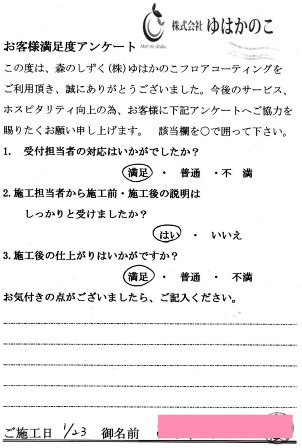 株式会社 ゆはかのこ
お客様満足度アンケート
この度は、森のしずく(株)ゆはかのこフロアコーティングを
ご利用頂き、誠にありがとうございました。今後のサービス、
ホスピタリティ向上の為、お客様に下記アンケートへご協力を
賜りたくお願い申し上げます。 該当欄を〇で囲って下さい。
1. 受付担当者の対応はいかがでしたか?
満足 ・ 普通 ・ 不満
2.施工担当者から施工前・施工後の説明は
しっかりと受けましたか?
はい ・ いいえ
3.施工後の仕上がりはいかがですか?
満足 ・ 普通 ・ 不満
お気付きの点がございましたら、ご記入ください。
ご施工日 1/23 御名前